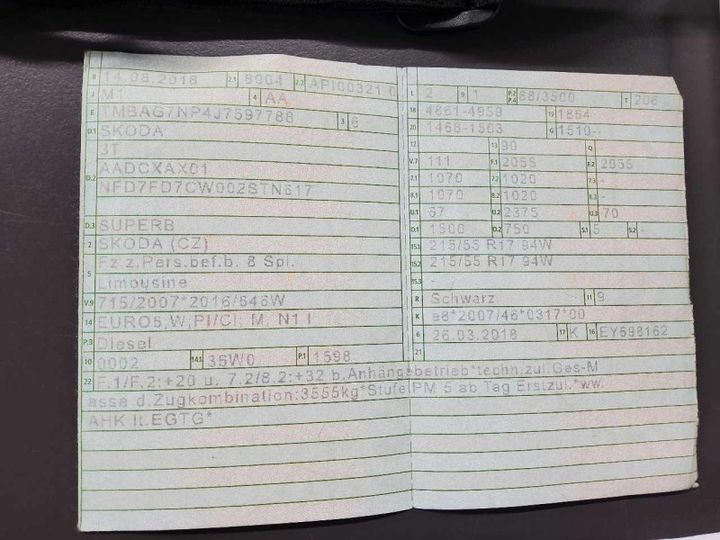 B 14.08.2018 2.1 8004 2.2 API00321 0
J M1 4 AA
E TMBAG7NP4J7597788 3 6
D.1 SKODA
3T
D.2 AADCXAX01
NFD7FD7CW002STN617
D.3 SUPERB
2 SKODA (CZ)
5 Fz z.Pers.bef.b. 8 Spl.
Limousine
V.9 715/2007*2016/646W
14 EURO6,W,PI/CI; M, N1 I
P.3 Diesel
10 0002 14.1 36W0 P.1 1598
L 2 9 1 P.2 P.4 88/3500 T 206
18 4861-4959 19 1864
20 1468-1503 G 1510--
12 13 90 Q
V.7 111 F.1 2055 F.2 2055
7.1 1070 7.2 1020 7.3 -
8.1 1070 8.2 1020 8.3 -
U.1 67 U.2 2375 U.3 70
O.1 1500 O.2 750 S.1 5 S.2 -
15.1 215/55 R17 94W
15.2 215/55 R17 94W
15.3 -
R Schwarz 11 9
K e8*2007/46*0317*00
6 26.03.2018 17 K 16 EY698162
21
22 F.1/F.2:+20 u. 7.2/8.2:+32 b.Anhängebetrieb*techn.zul.Ges-M
asse d.Zugkombination:3555kg*Stufe PM 5 ab Tag Erstzul.*ww.
AHK lt.EGTG*